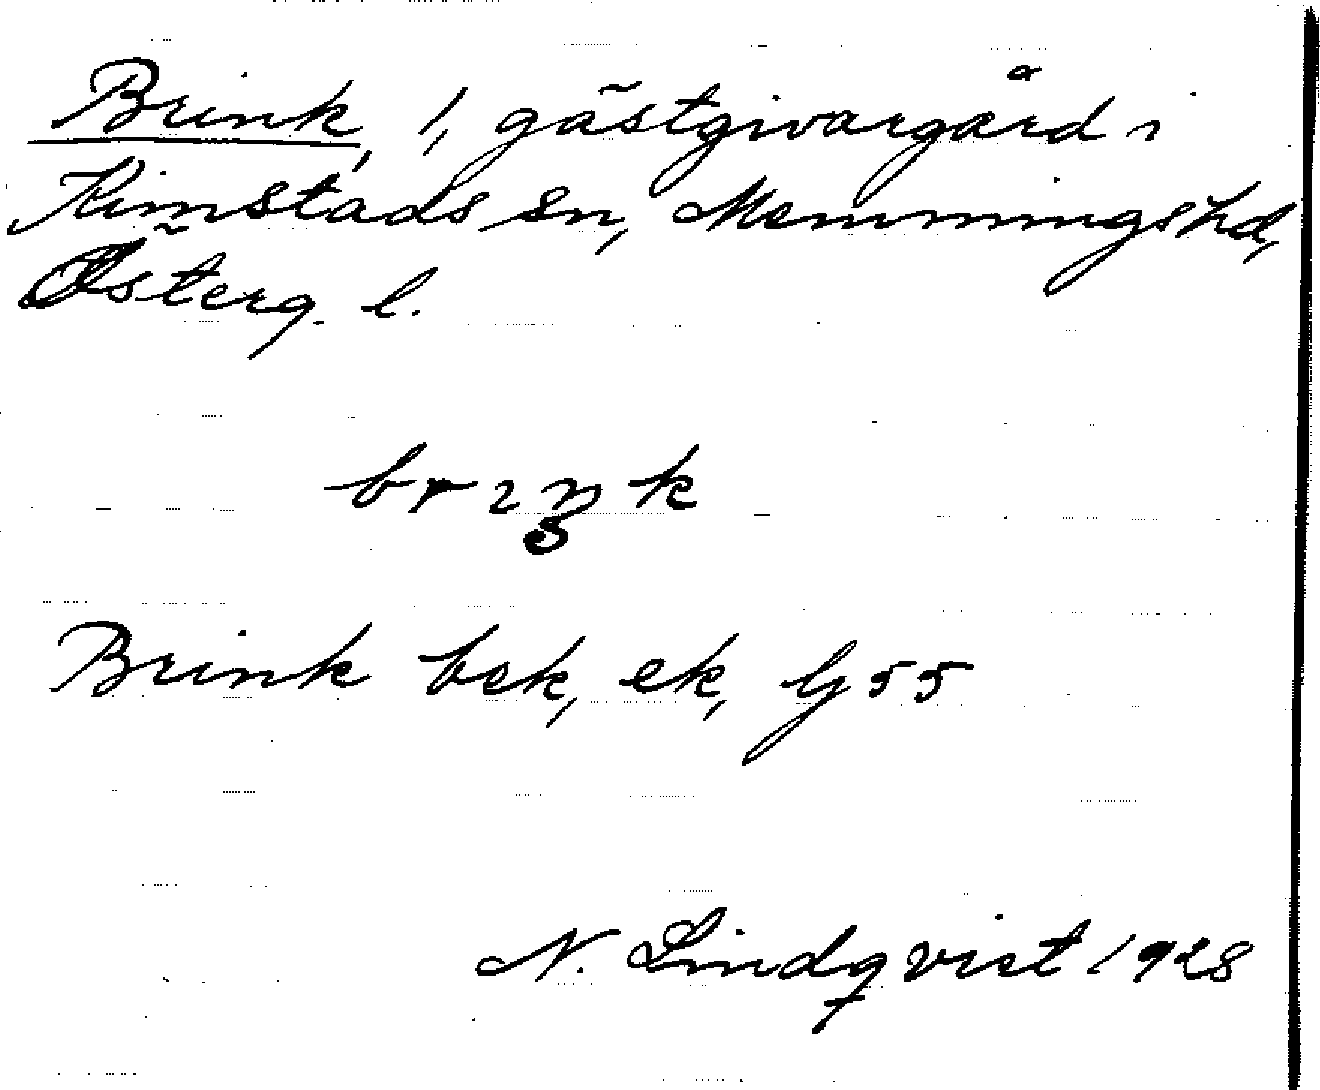 Brink, 1, gästgivargård i
Kimstads sn, Memmingshd,
Österg. l.
brıŋk
Brink bek, ek, Gj 55
N. Lindqvist 1928